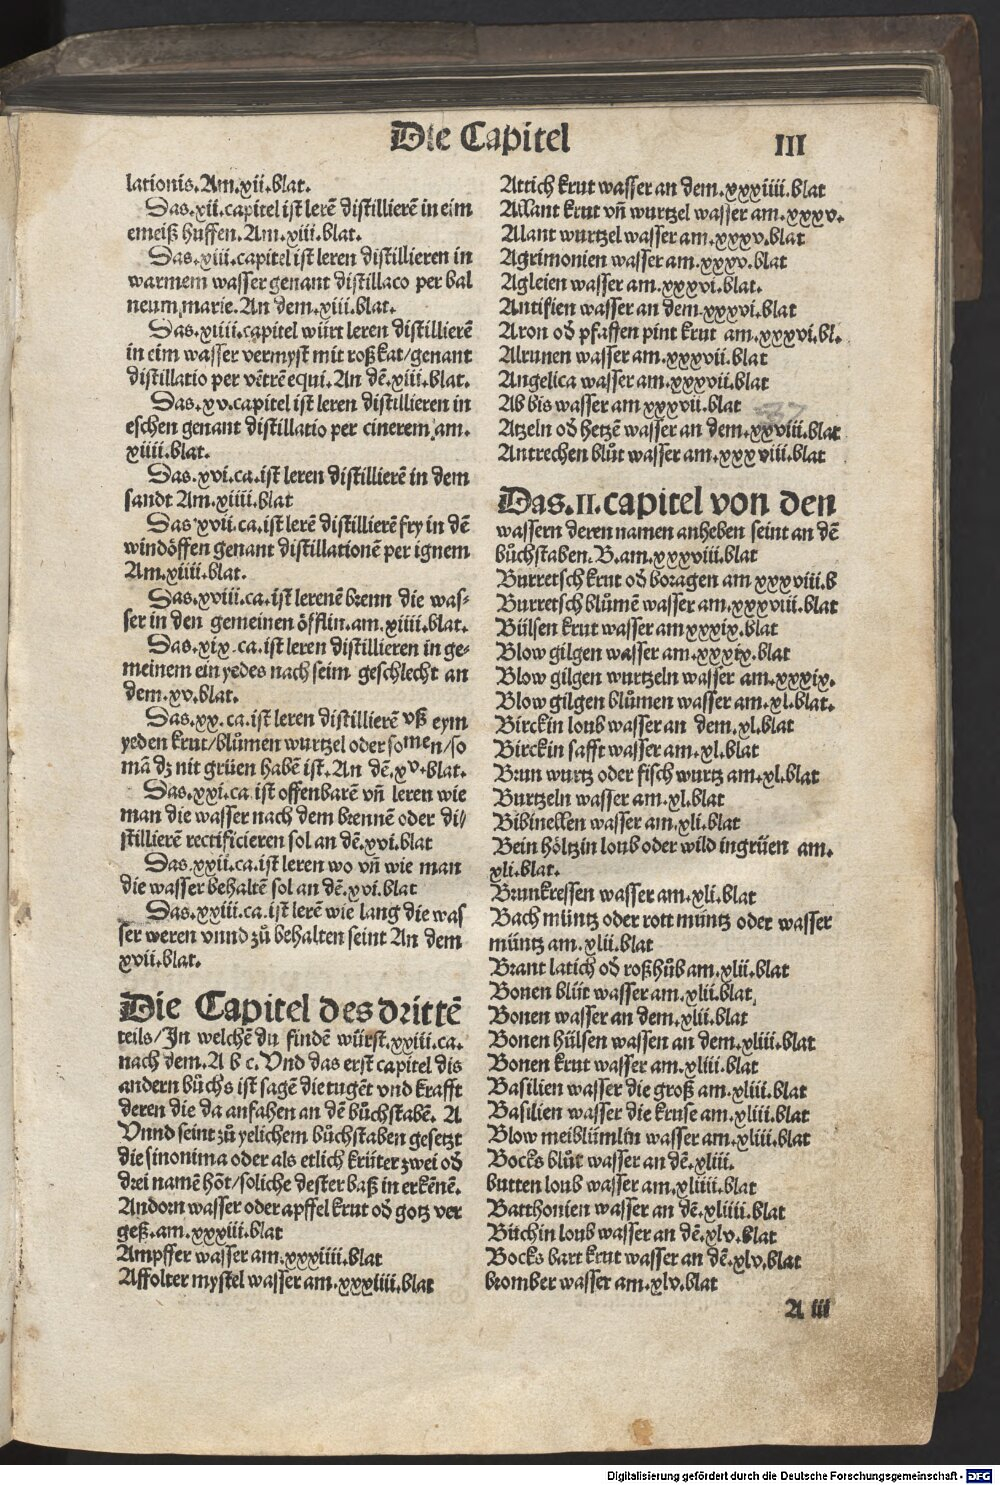 Die Capitel
III
lationis. Am.xii.blat.
Das.xii.capitel ist lerē distillierē in eim
emeiß huffen. Am.xiii.blat.
Das.xiii.capitel ist leren distillieren in
warmem wasser genant distillaco per bal
neum marie. An dem.xiii.blat.
Das.xiiii.capitel würt leren distillierē
in eim wasser vermyst mit roßkat/genant
distillatio per vētrē equi. An dē.xiii.blat.
Das.xv.capitel ist leren distillieren in
eschen genant distillatio per cinerem am.
xiiii.blat.
Das.xvi.ca.ist leren distillierē in dem
sandt Am.xiiii.blat
Das xvii.ca.ist lerē distillierē fry in dē
windöffen genant distillationē per ignem
Am.xiiii.blat.
Das.xviii.ca.ist lerenē brenn die was⸗
ser in den gemeinen öfflin.am.xiiii.blat.
Das.xix.ca.ist leren distillieren in ge⸗
meinem ein yedes nach seim geschlecht an
dem.xv.blat.
Das.xx.ca.ist leren distillierē vß eym
yeden krut/blůmen wurtzel oder somen/so
mā dz nit grüen habē ist. An dē.xv.blat.
Das.xxi.ca ist offenbarē vñ leren wie
man die wasser nach dem brennē oder di⸗
stillierē rectificieren sol an dē.xvi.blat
Das.xxii.ca.ist leren wo vñ wie man
die wasser behaltē sol an dē.xvi.blat
Das.xxiii.ca.ist lerē wie lang die was
ser weren vnnd zů behalten seint An dem
xvii.blat.
Die Capitel des drittē
teils/In welchē du findē würst.xxiii.ca.
nach dem. A b c. Vnd das erst capitel dis
andern bůchs ist sagē die tugēt vnd krafft
deren die da anfahen an dē bůchstabē. A
Vnnd seint zů yelichem bůchstaben gesetzt
die sinonima oder als etlich krüter zwei oď
drei namē hōt/soliche dester baß in erkēnē.
Andorn wasser oder apffel krut oď gotz ver
geß.am.xxxiii.blat
Ampffer wasser am.xxxiiii.blat
Affolter mystel wasser am.xxxiiii.blat
Attich krut wasser an dem.xxxiiii.blat
Allant krut vñ wurtzel wasser am.xxxv.
Alant wurtzel wasser am.xxxv.blat
Agrimonien wasser am.xxxv.blat
Agleien wasser am.xxxvi.blat.
Antifien wasser an dem.xxxvi.blat
Aron oď pfaffen pint krut am.xxxvi.bl.
Alrunen wasser am.xxxvii.blat
Angelica wasser am.xxxvii.blat
Ab bis wasser am xxxvii.blat
Atzeln oď hetzē wasser an dem.xxviii.blat
Antrechen blůt wasser am.xxxviii.blat
Das.II.capitel von den
wassern deren namen anheben seint an dē
bůchstaben. B.am.xxxviii.blat
Burretsch krut oď boragen am xxxviii.b
Burretsch blůmē wasser am.xxxviii.blat
Bülsen krut wasser am xxxix.blat
Blow gilgen wasser am.xxxix.blat
Blow gilgen wurtzeln wasser am.xxxix.
Blow gilgen blůmen wasser am.xl.blat.
Birckin loub wasser an dem.xl.blat
Birckin safft wasser am.xl.blat
Brun wurtz oder fisch wurtz am.xl.blat
Burtzeln wasser am.xl.blat
Bibinellen wasser am.xli.blat
Bein höltzin loub oder wild ingrüen am.
xli.blat.
Brunkressen wasser am.xli.blat
Bach müntz oder rott müntz oder wasser
müntz am.xlii.blat
Brant latich oď roßhůb am.xlii.blat
Bonen blüt wasser am.xlii.blat
Bonen wasser an dem.xlii.blat
Bonen hülsen wassen an dem.xliii.blat
Bonen krut wasser am.xliii.blat
Basilien wasser die groß am.xliii.blat
Basilien wasser die kruse am.xliii.blat
Blow meiblümlin wasser am.xliii.blat
Bocks blůt wasser an dē.xliii.
butten loub wasser am.xliiii.blat
Batthonien wasser an dē.xliiii.blat
Bůchin loub wasser an dē.xlv.blat
Bocks bart krut wasser an dē.xlv.blat
bromber wasser am.xlv.blat
A iii
Digitalisierung gefördert durch die Deutsche Forschungsgemeinschaft - DFG